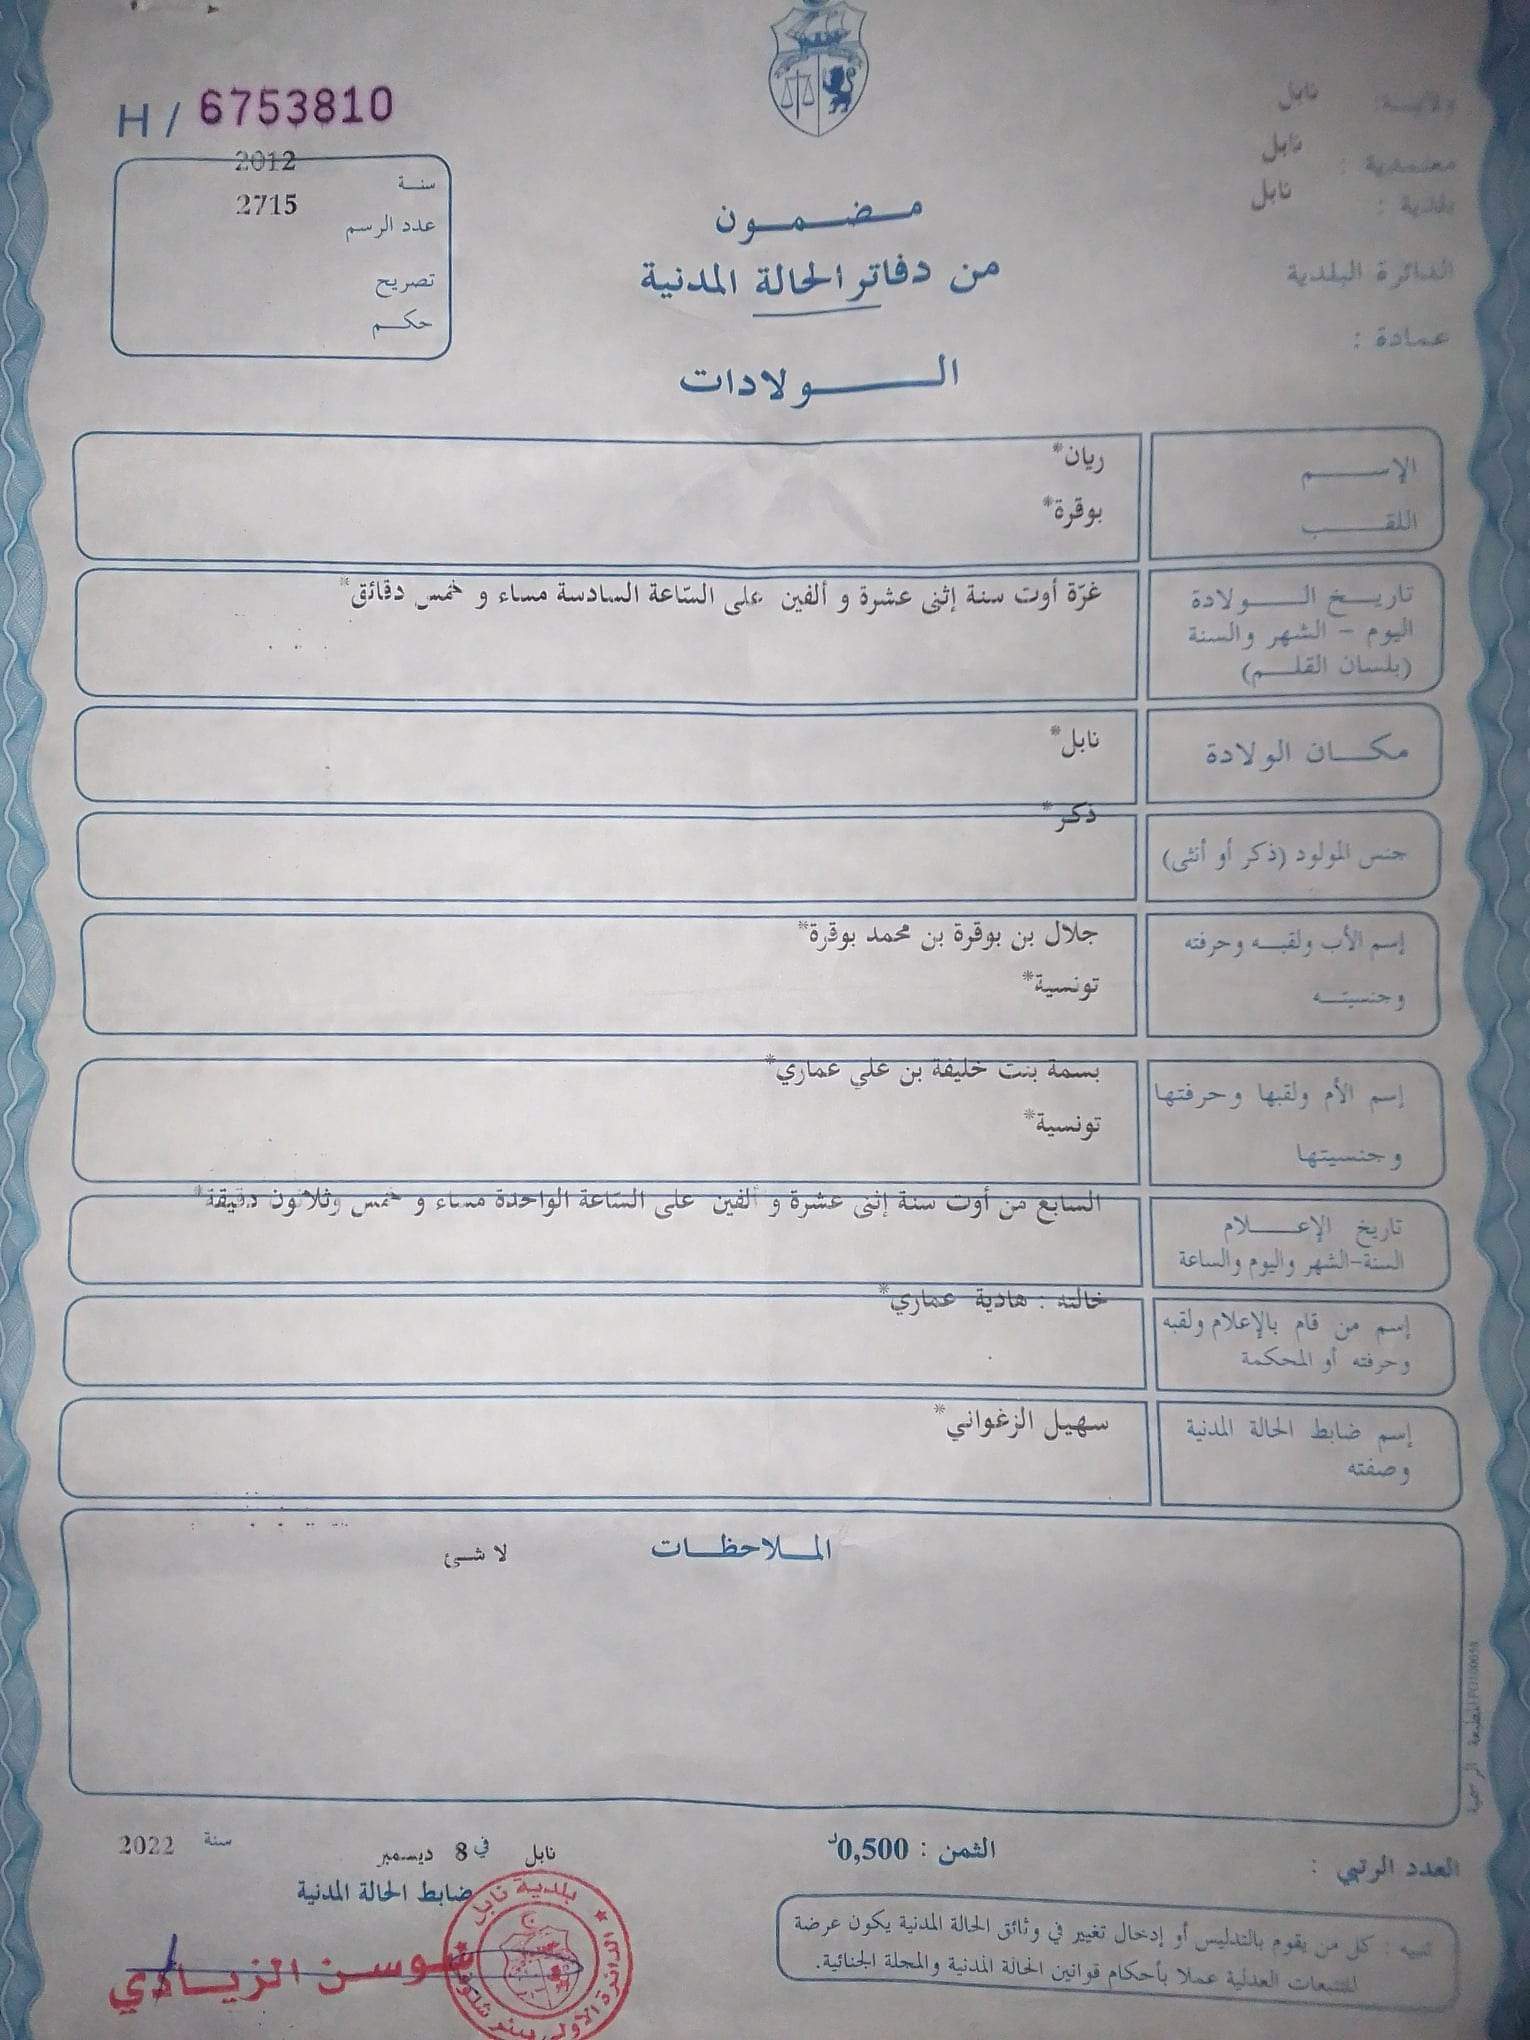 H / 6753810
ولايــة: نابل
معتمدية : نابل
بلدية : نابل
الدائرة البلدية
عمادة :
سنـة 2012
عدد الرسم 2715
تصريح
حكـم
مـضـمـون
من دفاتر الحالة المدنية
الـولادات
الإسـم ريان*
اللقـب بوقرة*
تاريـخ الـولادة
اليوم - الشهر والسنة
(بلسان القلـم)
غرّة أوت سنة إثنى عشرة و ألفين على السّاعة السادسة مساء و خمس دقائق*
مكـان الولادة نابل*
جنس المولود (ذكر أو أنثى) ذكر*
إسم الأب ولقبـه وحرفته جلال بن بوقرة بن محمد بوقرة*
وجنسيتـه تونسية*
إسم الأم ولقبها وحرفتها بسمة بنت خليفة بن علي عماري*
وجنسيتها تونسية*
تاريخ الإعـلام
السنة-الشهر واليوم والساعة
السابع من أوت سنة إثنى عشرة و ألفين على السّاعة الواحدة مساء و خمس وثلاثون دقيقة*
إسم من قام بالإعلام ولقبه
وحرفته أو المحكمة
خالته : هادية عماري*
إسم ضابط الحالة المدنية
وصفته
سهيل الزغواني*
المـلاحظـات
لا شئ
العدد الرتبي :
الثمن : 0,500د
نابل في 8 ديسمبر سنة 2022
ضابط الحالة المدنية
سوسن الزيـادي
بلدية نابل
تنبيه : كل من يقوم بالتدليس أو إدخال تغيير في وثائق الحالة المدنية يكون عرضة
للتتبعات العدلية عملا بأحكام قوانين الحالة المدنية والمجلة الجنائية.
المطبعة الرسمية